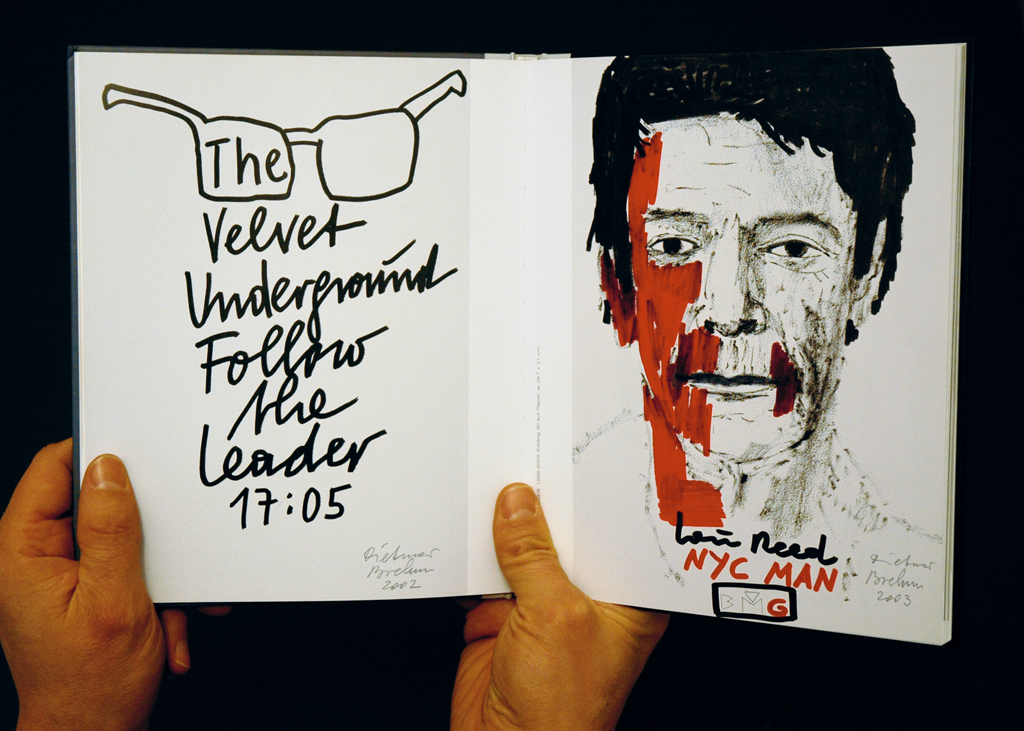 The
Velvet
Underground
Follow
the
Leader
17:05
Dietmar
Brehm
2002
Lou Reed
NYC MAN
BMG
Dietmar
Brehm
2003